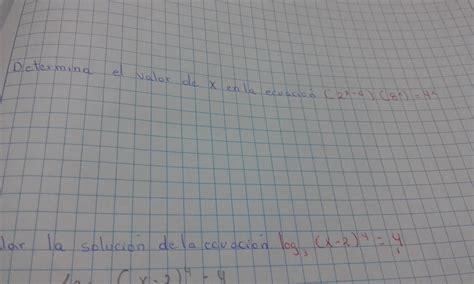 Determina el valor de x en la ecuación
lar la solución de la ecuación log₃ (x-2)⁴ = 4
(x-2)⁴ = 4